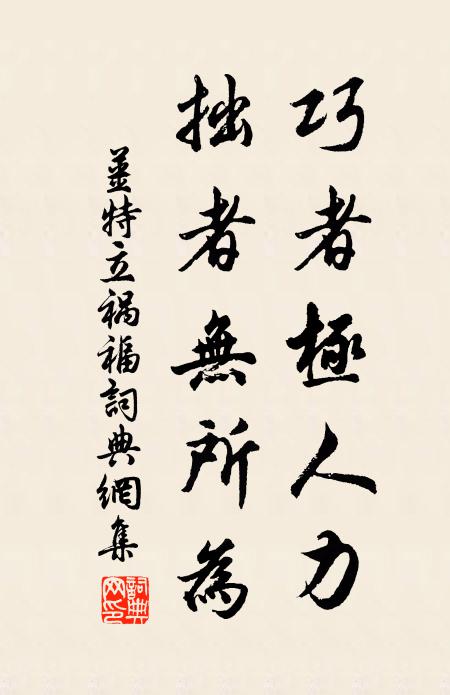 巧者極人力
拙者無所為
姜特立禍福詞典網集
詞典網印